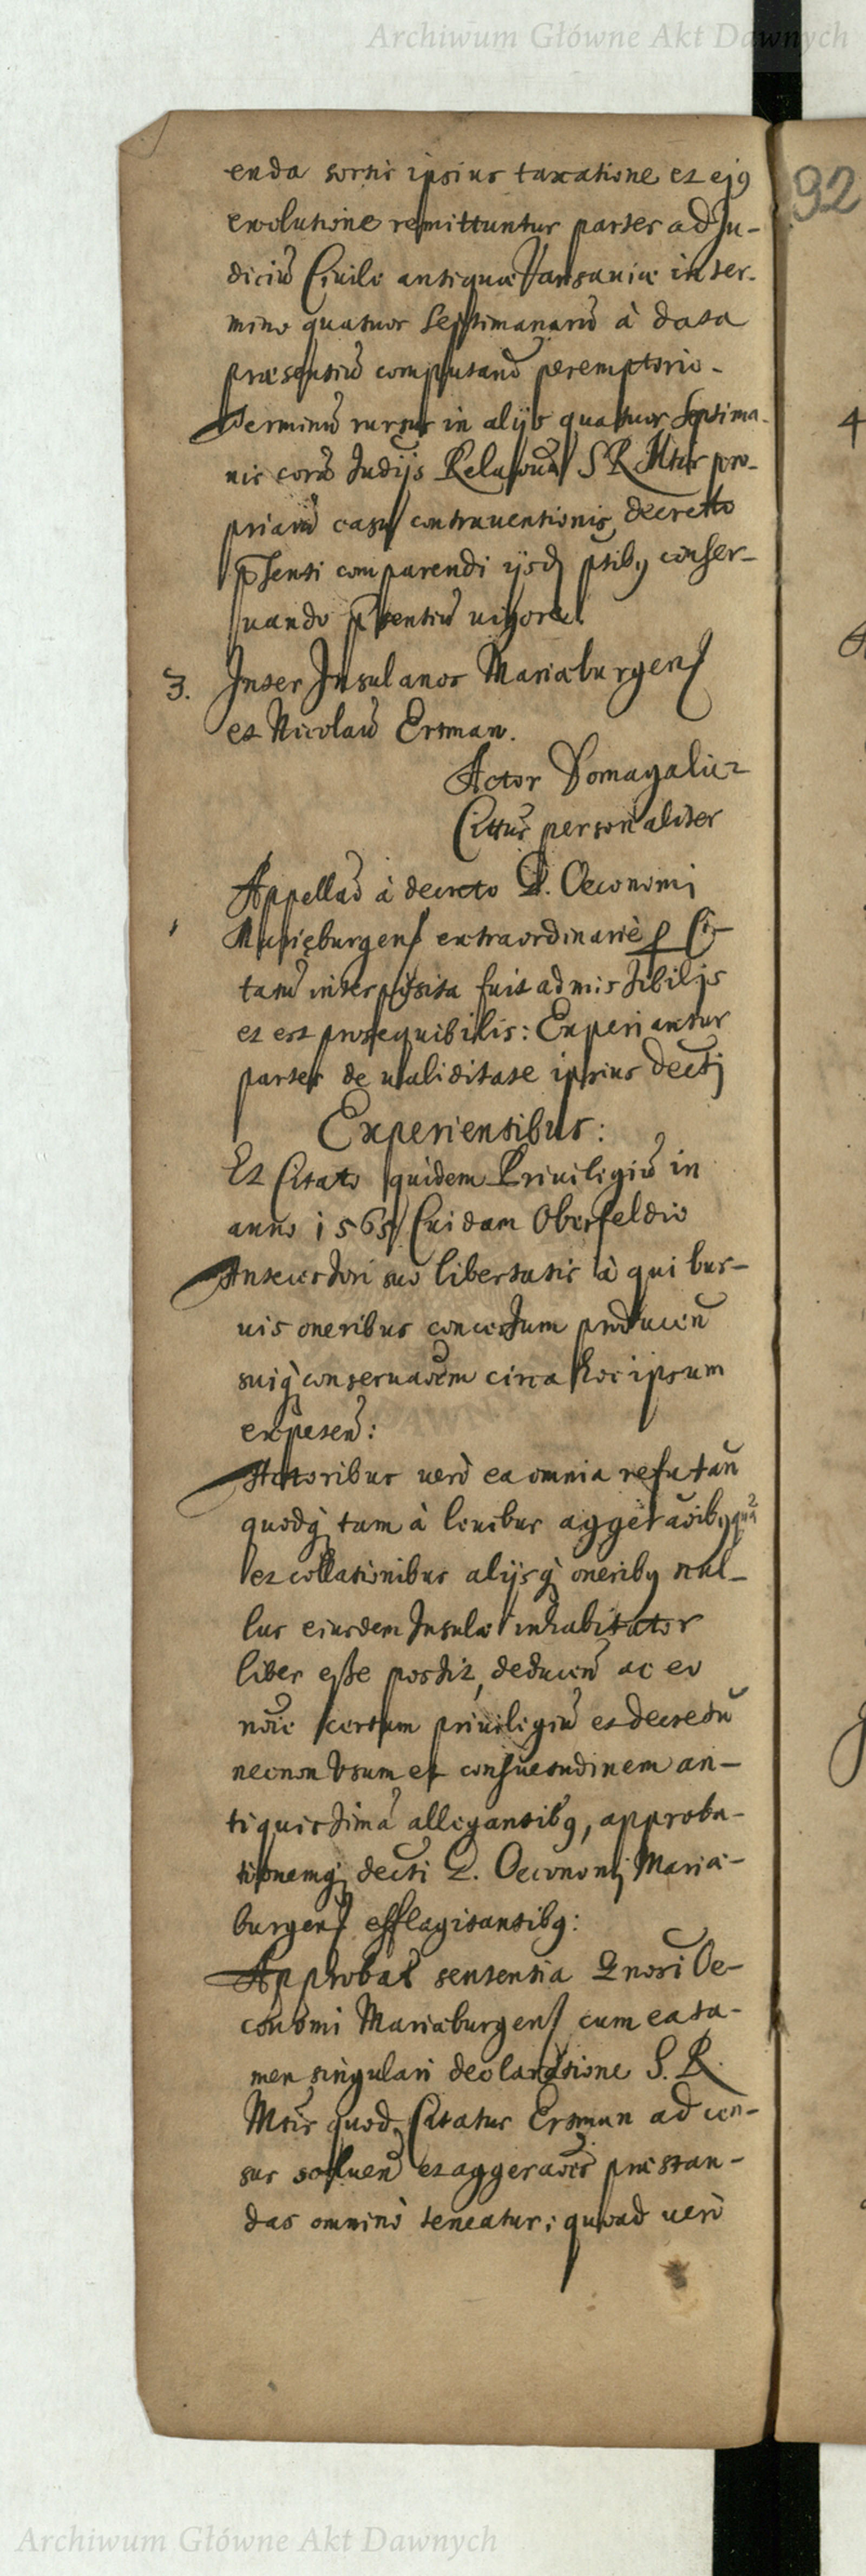 Archiwum Główne Akt Dawnych
enda sortis ipsius taxatione et ejꝰ
evolutione remittuntur partes ad Ju-
diciū Civile antiquæ Varsaviæ in ter-
mino quatuor Septimanarū à data
præsentiū computand peremptorio.
Terminū rursus in alijs quatuor Septima-
nis corā Judijs Relationū S R Mtis pro-
priarū casu contraventionis decretto
pſenti comparendi ijsd ptibꝰ conser-
uando pſentiū uigore.
3. Inter Insulanos Mariæburgenſ
et Nicolaū Ersman.
Actor Domagalicz
Cittus personaliter
Appellaō à decreto D. Oeconomi
Mariæburgenſ extraordinariè p Ci-
tatū interposita fuit admissibilis
et est prosequibilis: Experiantur
partes de ualiditate ipsius decti
Experientibus:
Et Citato quidem Priuilegiū in
anno 1565 Cuidam Oberfeldio
Antecessori suo libertatis à quibus-
uis oneribus concessum producen
suiq conseruaōem circa hoc ipsum
expeten:
Actoribus uerò ea omnia refutan
quodq tam à leuibus aggeraōibꝰ quā
et collationibus alijsq oneribꝰ nul-
lus eiusdem Insulæ inhabitator
liber esse possit, deducen ac eo
noīe certum priuilegiū et decretū
necnon Vsum et consuetudinem an-
tiquissimā allegantibꝰ, approba-
tionemq decti D. Oeconomi Mariæ-
burgenſ efflagitantibꝰ:
Approbat sententia Dnosi Oe-
conomi Mariæburgenſ cum ea ta-
men singulari declaratione S. R.
Mtis quod Citatus Ersman ad cen-
sus soluen et aggeraōes præstan-
das omninò teneatur; quoad uerò
92
4
Archiwum Główne Akt Dawnych